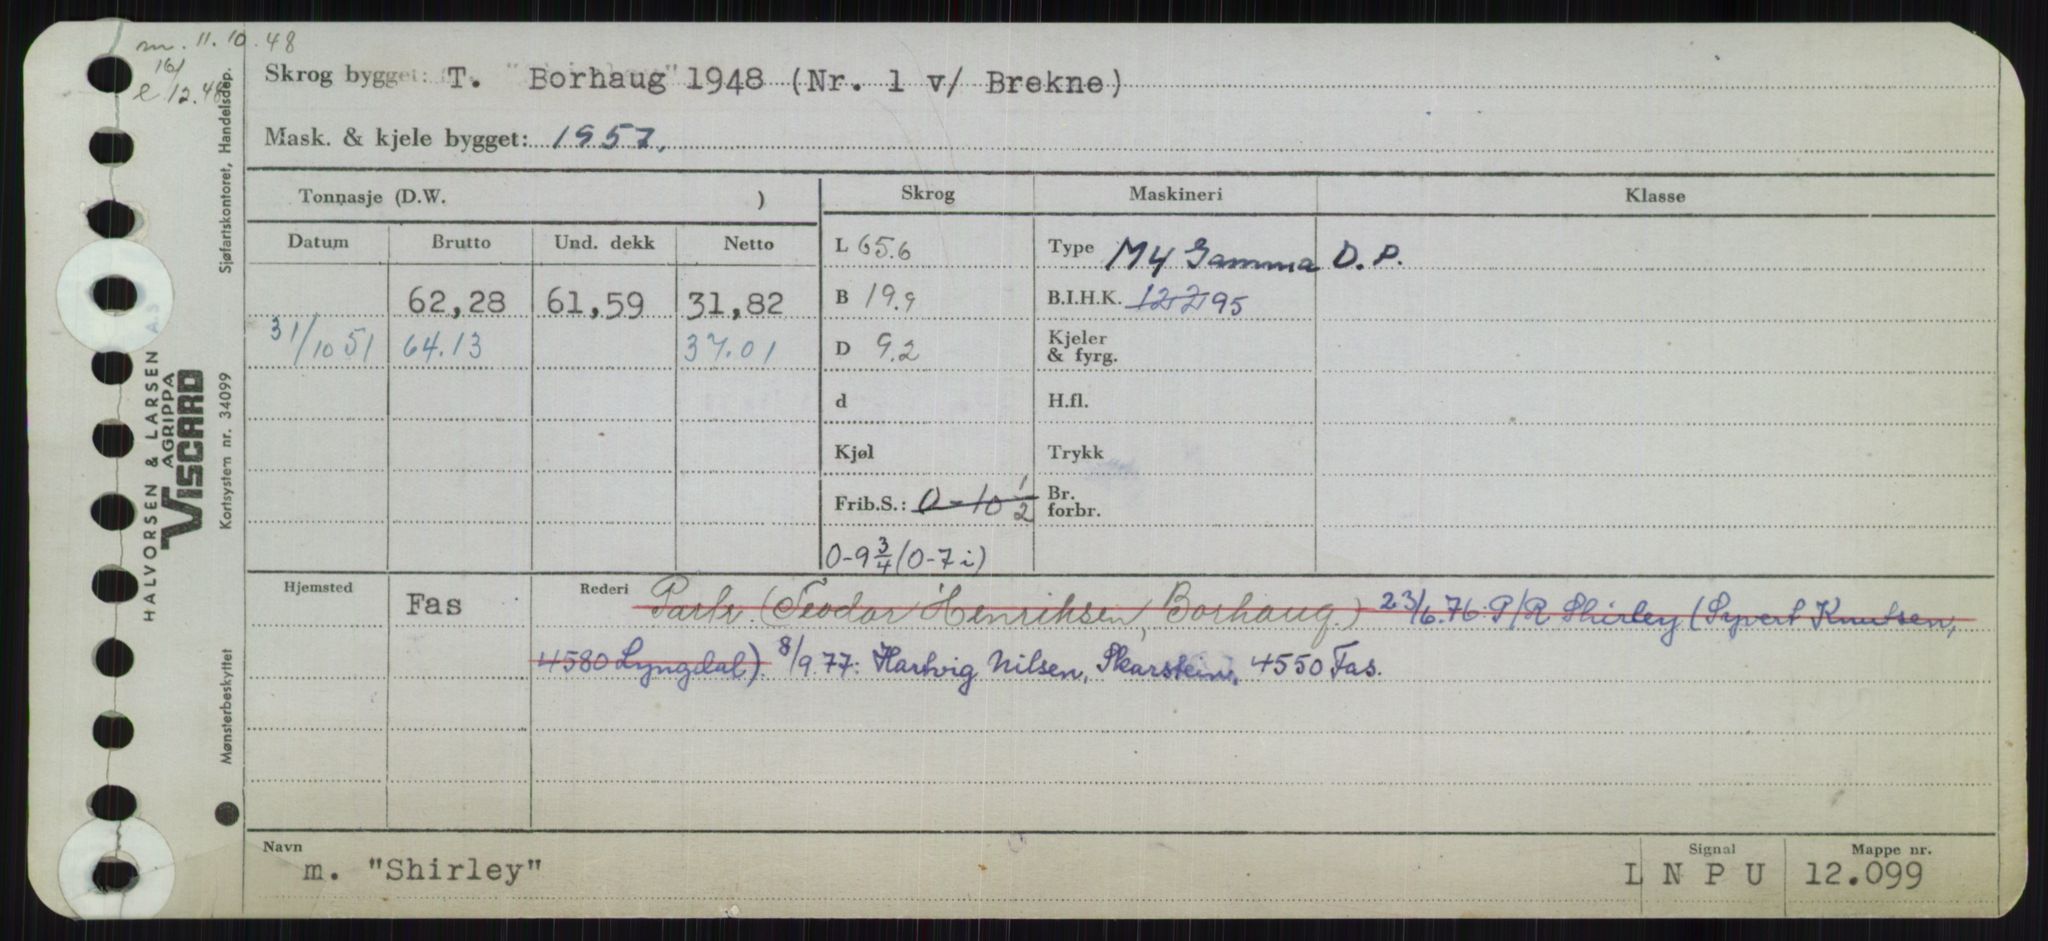 m. 11.10.48
16/
e 12.48
Skrog bygget: T. Borhaug 1948 (Nr. 1 v/ Brekne)
Mask. & kjele bygget: 1957.
Tonnasje (D.W. )
Skrog
Maskineri
Klasse
Datum
Brutto
Und. dekk
Netto
62,28
61,59
31,82
31/10 51
64.13
37.01
L 65.6
B 19.9
D 9.2
d
Kjøl
Frib.S.: 0-10 1/2
0-9 3/4 (0-7 i)
Type M4 Gamma D.P.
B.I.H.K. 122 95
Kjeler
& fyrg.
H.fl.
Trykk
Br.
forbr.
Hjemsted
Fas
Rederi
Partr. (Teodor Henriksen, Borhaug.) 23/6.76. P/R Shirley (Syvert Knutsen,
4580 Lyngdal). 8/9.77: Hartvig Nilsen, Skarstein, 4550 Fas.
Navn
m. "Shirley"
Signal
L N P U
Mappe nr.
12.099
HALVORSEN & LARSEN A.S
AGRIPPA
VISCARD
Sjøfartskontoret, Handelsdep.
Kortsystem nr. 34099
Mønsterbeskyttet